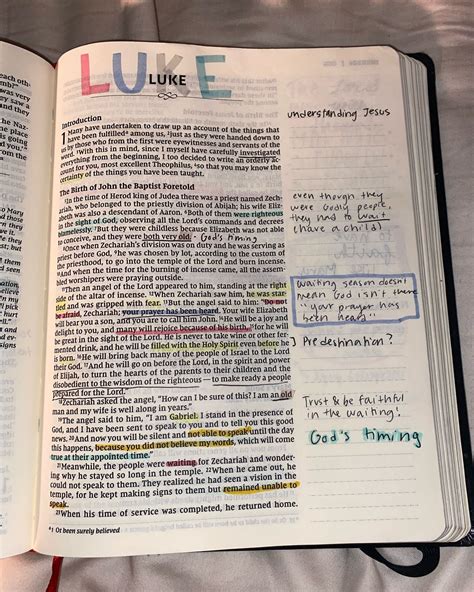 LUKE
LUKE
understanding Jesus
Introduction
1 Many have undertaken to draw up an account of the things that
have been fulfilled^a among us, ²just as they were handed down to
us by those who from the first were eyewitnesses and servants of the
word. ³With this in mind, since I myself have carefully investigated
everything from the beginning, I too decided to write an orderly ac-
count for you, most excellent Theophilus, ⁴so that you may know the
certainty of the things you have been taught.
The Birth of John the Baptist Foretold
⁵In the time of Herod king of Judea there was a priest named Zech-
ariah, who belonged to the priestly division of Abijah; his wife Eliz-
abeth was also a descendant of Aaron. ⁶Both of them were righteous
in the sight of God, observing all the Lord's commands and decrees
blamelessly. ⁷But they were childless because Elizabeth was not able
to conceive, and they were both very old. - God's timing
⁸Once when Zechariah's division was on duty and he was serving as
priest before God, ⁹he was chosen by lot, according to the custom of
the priesthood, to go into the temple of the Lord and burn incense.
¹⁰And when the time for the burning of incense came, all the assem-
bled worshipers were praying outside.
¹¹Then an angel of the Lord appeared to him, standing at the right
side of the altar of incense. ¹²When Zechariah saw him, he was star-
tled and was gripped with fear. ¹³But the angel said to him: "Do not
be afraid, Zechariah; your prayer has been heard. Your wife Elizabeth
will bear you a son, and you are to call him John. ¹⁴He will be a joy and
delight to you, and many will rejoice because of his birth, ¹⁵for he will
be great in the sight of the Lord. He is never to take wine or other fer-
mented drink, and he will be filled with the Holy Spirit even before he
is born. ¹⁶He will bring back many of the people of Israel to the Lord
their God. ¹⁷And he will go on before the Lord, in the spirit and power of
Elijah, to turn the hearts of the parents to their children and the
disobedient to the wisdom of the righteous — to make ready a people
prepared for the Lord."
¹⁸Zechariah asked the angel, "How can I be sure of this? I am an old
man and my wife is well along in years."
¹⁹The angel said to him, "I am Gabriel. I stand in the presence of
God, and I have been sent to speak to you and to tell you this good
news. ²⁰And now you will be silent and not able to speak until the day
this happens, because you did not believe my words, which will come
true at their appointed time."
²¹Meanwhile, the people were waiting for Zechariah and wonder-
ing why he stayed so long in the temple. ²²When he came out, he
could not speak to them. They realized he had seen a vision in the
temple, for he kept making signs to them but remained unable to
speak.
²³When his time of service was completed, he returned home.
^a1 Or been surely believed
even though they
were Godly people,
they had to wait
(have a child)
waiting season doesn't
mean God isn't there
"your prayer has
been heard"
Predestination?
Trust & be faithful
in the waiting!
God's timing